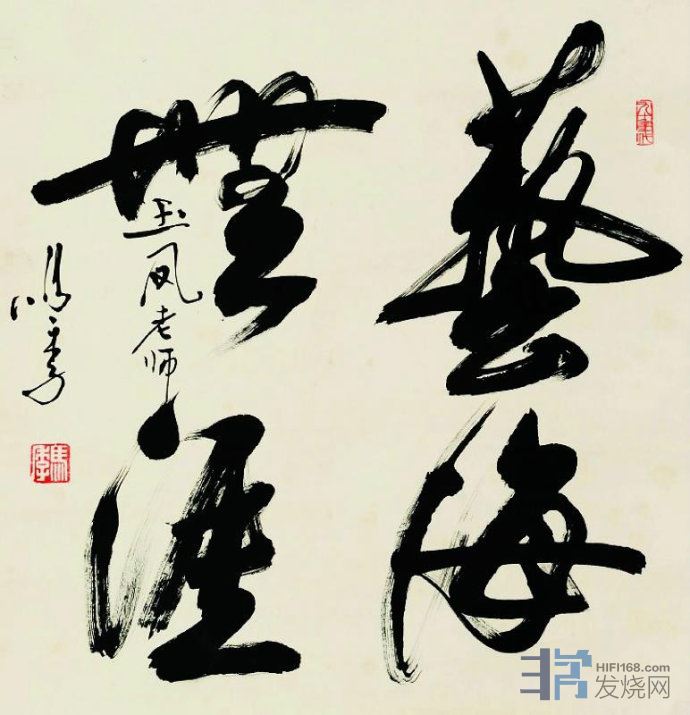 藝海
無涯
玉凤老师
馬季
馬季
HIFI168.com
发烧网